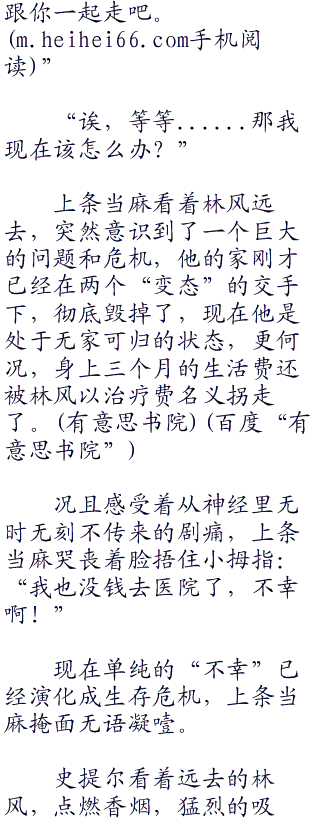 跟你一起走吧。
(m.heihei66.com手机阅
读)”
“诶，等等......那我
现在该怎么办？”
上条当麻看着林风远
去，突然意识到了一个巨大
的问题和危机，他的家刚才
已经在两个“变态”的交手
下，彻底毁掉了，现在他是
处于无家可归的状态，更何
况，身上三个月的生活费还
被林风以治疗费名义拐走
了。(有意思书院)(百度“有
意思书院”)
况且感受着从神经里无
时无刻不传来的剧痛，上条
当麻哭丧着脸捂住小拇指：
“我也没钱去医院了，不幸
啊！”
现在单纯的“不幸”已
经演化成生存危机，上条当
麻掩面无语凝噎。
史提尔看着远去的林
风，点燃香烟，猛烈的吸